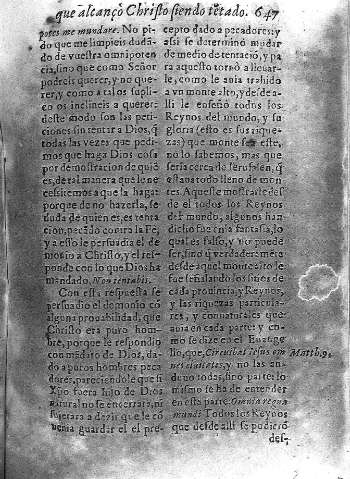 que alcançò Christo siendo tẽtado. 647
potes me mundare. No pi-
do que me limpieis dudã-
do de vuestra omnipoten
cia, sino que como Señor
podreis querer, y no que-
rer, y como a tal os supli-
co os inclineis a querer:
deste modo son las peti-
ciones sin tentar a Dios, q̃
todas las vezes que pedi-
mos que haga Dios cosa
por demostracion de quiẽ
es, de tal manera que le ne
cessitemos a que la haga:
porque de no hazerla, se
duda de quien es, es tenta
cion, pecado contra la Fè,
y a esso le persuadia el de
monio a Christo, y el res-
ponde con lo que Dios ha
mandado, Non tentabis.
Con esta respuesta se
persuadio el demonio cõ
alguna prouabilidad, que
Christo era puro hom-
bre, porque le respondio
con mãdato de Dios, da-
do a puros hombres peca
dores, pareciendole que si
Xpo fuera hijo de Dios
natural no se encerrara, ni
sujetara a dezir que le cõ
uenia guardar el pre-
cepto dado a pecadores: y
assi se determinò mudar
de medio de tentacio, y pa
ra aquesto tornò a lleuar-
le, como le auia trahido
a vn monte alto, y desde a-
lli le enseñò todos los
Reynos del mundo, y su
gloria (esto es sus rique-
zas) que monte fue este,
no lo sabemos, mas que
seria cerca de Ierusalen, q̃
està todo lleno de mon-
tes. Aqueste mostrarle des
de el todos los Reynos
del mundo, algunos han
dicho fue en la fantasia, lo
qual es falso, y no puede
ser, sino q̃ verdaderamẽte
desde aquel monte alto le
fue señalando los fines de
cada prouincia, y Reynos,
y las riquezas particula-
res, y connaturales que
auia en cada parte: y co-
mo se dize en el Euange-
lio, que, Circuibat Iesus om Matth. 9.
nes ciuitates, y no las an-
duuo todas, sino parte: lo
mismo se ha de entender
en esta parte. Omnia regna
mundi. Todos los Reynos
que desde alli se pudierõ
des-